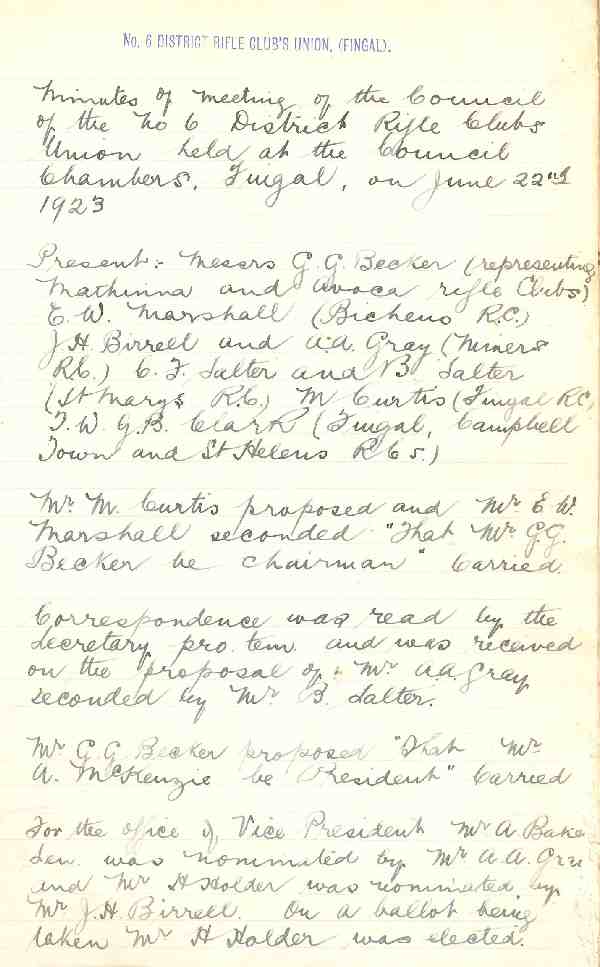 No. 6 DISTRICT RIFLE CLUB'S UNION, (FINGAL).
Minutes of meeting of the Council
of the No 6 District Rifle Clubs
Union held at the Council
Chambers, Fingal, on June 22nd
1923
Present:- Messrs G. G. Becker (representing
Mathinna and Avoca rifle Clubs)
E. W. Marshall (Bicheno R.C.)
J H. Birrell and A.A. Gray (Miners
R.C.) C. F. Salter and B. Salter
(St Marys R.C.) M Curtis (Fingal R.C.
T. W. G. B. Clark (Fingal, Campbell
Town and St Helens R C s.)
Mr. M. Curtis proposed and Mr E W.
Marshall seconded "That Mr G.G.
Becker be chairman" Carried.
Correspondence was read by the
Secretary pro. tem. and was received
on the proposal of Mr A.A. Gray
seconded by Mr B. Salter.
Mr G. G Becker proposed "That Mr
A. McKenzie be President" Carried
For the office of Vice President Mr A Bake
Sen. was nominated by Mr A. A. Gra
and Mr H Holder was nominated by
Mr J.H. Birrell. On a ballot being
taken Mr H Holder was elected.